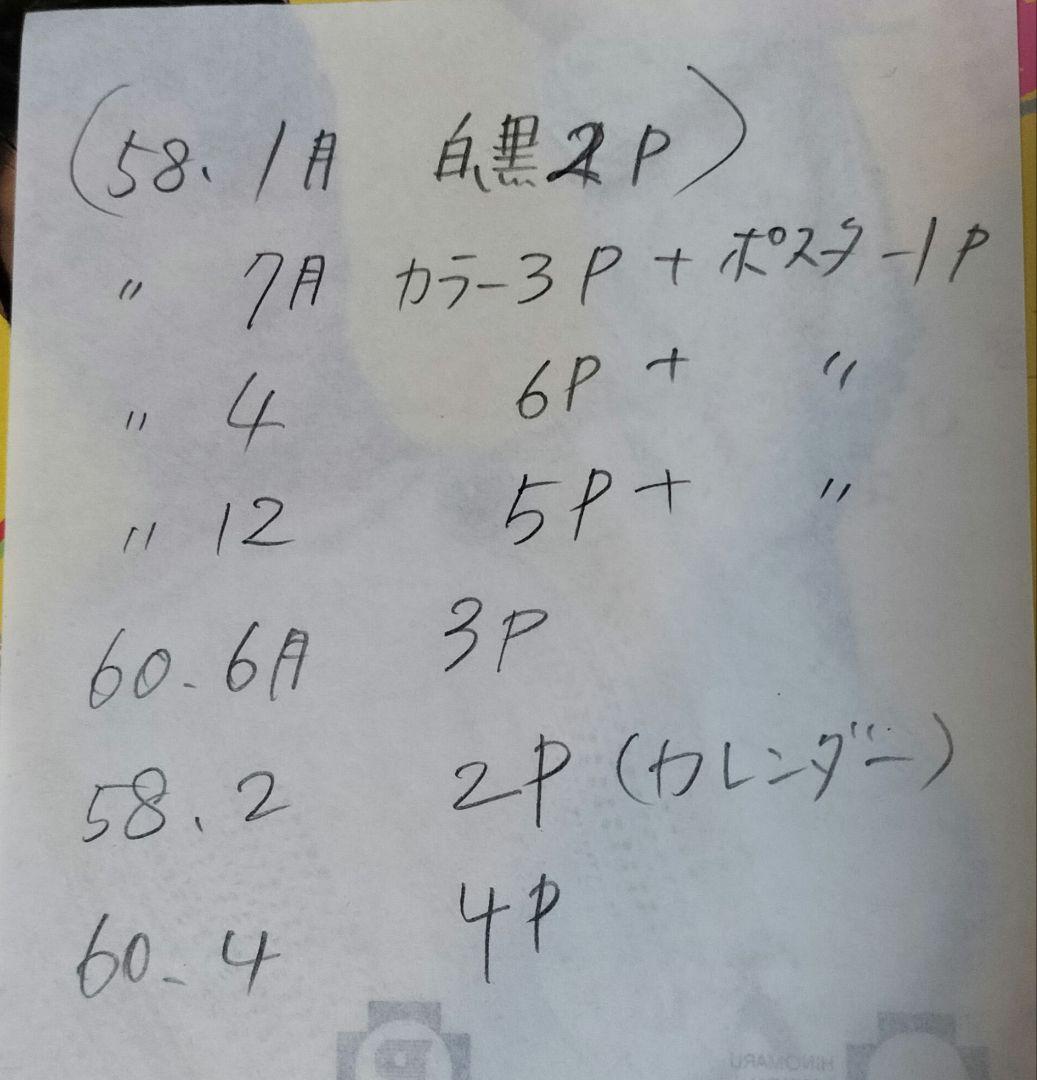 (58.1月 白黒2P)
〃 7月 カラー3P+ポスター1P
〃 4 6P+ 〃
〃 12 5P+ 〃
60.6月 3P
58.2 2P(カレンダー)
60.4 4P
HINOMARU